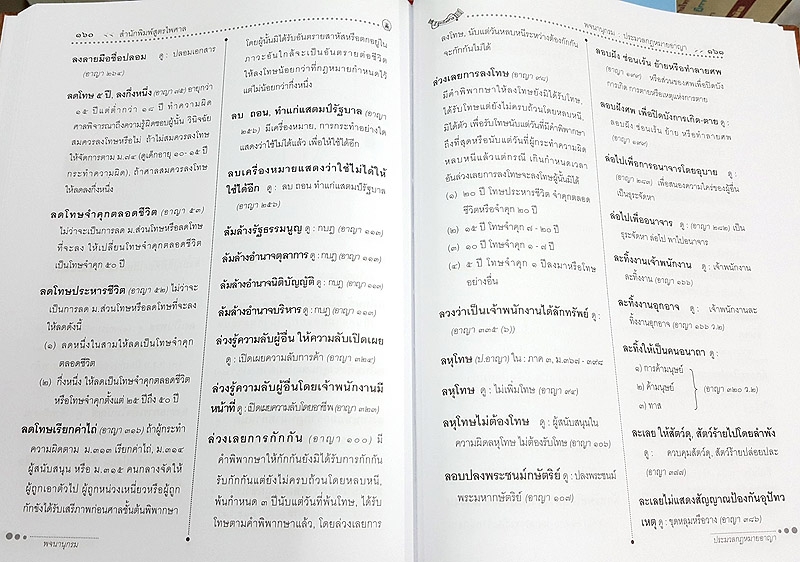 ๑๖๐ << สำนักพิมพ์สูตรไพศาล
ลงลายมือชื่อปลอม ดู : ปลอมเอกสาร
(อาญา ๒๖๔)
ลดโทษ ๕ ปี, ลงกึ่งหนึ่ง (อาญา ๗๕) อายุกว่า
๑๕ ปีแต่ต่ำกว่า ๑๘ ปี ทำความผิด
ศาลพิจารณาถึงความรู้ผิดชอบผู้นั้น วินิจฉัย
สมควรลงโทษหรือไม่ ถ้าไม่สมควรลงโทษ
ให้จัดการตาม ม.๗๔ (ดูเด็กอายุ ๑๐-๑๕ ปี
กระทำความผิด), ถ้าศาลสมควรลงโทษ
ให้ลดลงกึ่งหนึ่ง
ลดโทษจำคุกตลอดชีวิต (อาญา ๕๓)
ไม่ว่าจะเป็นการลด ม.ส่วนโทษหรือลดโทษ
ที่จะลง ให้เปลี่ยนโทษจำคุกตลอดชีวิต
เป็นโทษจำคุก ๕๐ ปี
ลดโทษประหารชีวิต (อาญา ๕๒) ไม่ว่าจะ
เป็นการลด ม.ส่วนโทษหรือลดโทษที่จะลง
ให้ลดดังนี้
(๑) ลดหนึ่งในสามให้ลดเป็นโทษจำคุก
ตลอดชีวิต
(๒) กึ่งหนึ่ง ให้ลดเป็นโทษจำคุกตลอดชีวิต
หรือโทษจำคุกตั้งแต่ ๒๕ ปีถึง ๕๐ ปี
ลดโทษเรียกค่าไถ่ (อาญา ๓๑๖) ถ้าผู้กระทำ
ความผิดตาม ม.๓๑๓ เรียกค่าไถ่, ม.๓๑๔
ผู้สนับสนุน หรือ ม.๓๑๕ คนกลางจัดให้
ผู้ถูกเอาตัวไป ผู้ถูกหน่วงเหนี่ยวหรือผู้ถูก
กักขังได้รับเสรีภาพก่อนศาลชั้นต้นพิพากษา
โดยผู้นั้นมิได้รับอันตรายสาหัสหรือตกอยู่ใน
ภาวะอันใกล้จะเป็นอันตรายต่อชีวิต
ให้ลงโทษน้อยกว่าที่กฎหมายกำหนดไว้
แต่ไม่น้อยกว่ากึ่งหนึ่ง
ลบ ถอน, ทำแก่แสตมป์รัฐบาล (อาญา
๒๕๖) มีเครื่องหมาย, การกระทำอย่างใด
แสดงว่าใช้ไม่ได้แล้ว เพื่อให้ใช้ได้อีก
ลบเครื่องหมายแสดงว่าใช้ไม่ได้ให้
ใช้ได้อีก ดู : ลบ ถอน ทำแก่แสตมป์รัฐบาล
(อาญา ๒๕๖)
ล้มล้างรัฐธรรมนูญ ดู : กบฏ (อาญา ๑๑๓)
ล้มล้างอำนาจตุลาการ ดู : กบฏ (อาญา ๑๑๓)
ล้มล้างอำนาจนิติบัญญัติ ดู : กบฏ (อาญา ๑๑๓)
ล้มล้างอำนาจบริหาร ดู : กบฏ (อาญา ๑๑๓)
ล่วงรู้ความลับผู้อื่น ให้ความลับเปิดเผย
ดู : เปิดเผยความลับการค้า (อาญา ๓๒๔)
ล่วงรู้ความลับผู้อื่นโดยเจ้าพนักงานมี
หน้าที่ ดู : เปิดเผยความลับโดยอาชีพ (อาญา ๓๒๓)
ล่วงเลยการกักกัน (อาญา ๑๐๐) มี
คำพิพากษาให้กักกันยังมิได้รับการกักกัน
รับกักกันแต่ยังไม่ครบถ้วนโดยหลบหนี,
พ้นกำหนด ๓ ปีนับแต่วันที่พ้นโทษ, ได้รับ
โทษตามคำพิพากษาแล้ว, โดยล่วงเลยการ
พจนานุกรม
พจนานุกรม : ประมวลกฎหมายอาญา ๑๖๑
ลงโทษ, นับแต่วันหลบหนีระหว่างต้องกักกัน
จะกักกันไม่ได้
ล่วงเลยการลงโทษ (อาญา ๙๘)
มีคำพิพากษาให้ลงโทษยังมิได้รับโทษ,
ได้รับโทษแต่ยังไม่ครบถ้วนโดยหลบหนี,
มิได้ตัว เพื่อรับโทษนับแต่วันที่มีคำพิพากษา
ถึงที่สุดหรือนับแต่วันที่ผู้กระทำความผิด
หลบหนีแล้วแต่กรณี เกินกำหนดเวลา
อันล่วงเลยการลงโทษจะลงโทษผู้นั้นมิได้
(๑) ๒๐ ปี โทษประหารชีวิต จำคุกตลอด
ชีวิตหรือจำคุก ๒๐ ปี
(๒) ๑๕ ปี โทษจำคุก ๗ - ๒๐ ปี
(๓) ๑๐ ปี โทษจำคุก ๑ - ๗ ปี
(๔) ๕ ปี โทษจำคุก ๑ ปีลงมาหรือโทษ
อย่างอื่น
ลวงว่าเป็นเจ้าพนักงานได้ลักทรัพย์ ดู :
(อาญา ๓๓๕ (๖))
ลหุโทษ (ป.อาญา) ใน : ภาค ๓, ม.๓๖๗ - ๓๙๘
ลหุโทษ ดู : ไม่เพิ่มโทษ (อาญา ๙๔)
ลหุโทษไม่ต้องโทษ ดู : ผู้สนับสนุนใน
ความผิดลหุโทษ ไม่ต้องรับโทษ (อาญา ๑๐๖)
ลอบปลงพระชนม์กษัตริย์ ดู : ปลงพระชนม์
พระมหากษัตริย์ (อาญา ๑๐๗)
ลอบฝัง ซ่อนเร้น ย้ายหรือทำลายศพ
(อาญา ๑๙๙) หรือส่วนของศพเพื่อปิดบัง
การเกิด การตายหรือเหตุแห่งการตาย
ลอบฝังศพ เพื่อปิดบังการเกิด-ตาย ดู :
ลอบฝัง ซ่อนเร้น ย้าย หรือทำลายศพ
(อาญา ๑๙๙)
ล่อไปเพื่อการอนาจารโดยอุบาย ดู :
(อาญา ๒๘๓) เพื่อสนองความใคร่ของผู้อื่น
เป็นธุระจัดหา
ล่อไปเพื่ออนาจาร ดู : (อาญา ๒๘๒) เป็น
ธุระจัดหา ล่อไป พาไปอนาจาร
ละทิ้งงานเจ้าพนักงาน ดู : เจ้าพนักงาน
ละทิ้งงาน (อาญา ๑๖๖)
ละทิ้งงานอุกอาจ ดู : เจ้าพนักงานละ
ทิ้งงานอุกอาจ (อาญา ๑๖๖ ว.๒)
ละทิ้งให้เป็นคนอนาถา ดู :
๑) การค้ามนุษย์
๒) ค้ามนุษย์ (อาญา ๓๒๐ ว.๒)
๓) ทาส
ละเลย ให้สัตว์ดุ, สัตว์ร้ายไปโดยลำพัง
ดู : ควบคุมสัตว์ดุ, สัตว์ร้ายปล่อยปละ
(อาญา ๓๗๗)
ละเลยไม่แสดงสัญญาณป้องกันอุปัทว
เหตุ ดู : ขุดหลุมหรือวาง (อาญา ๓๘๖)
ประมวลกฎหมายอาญา